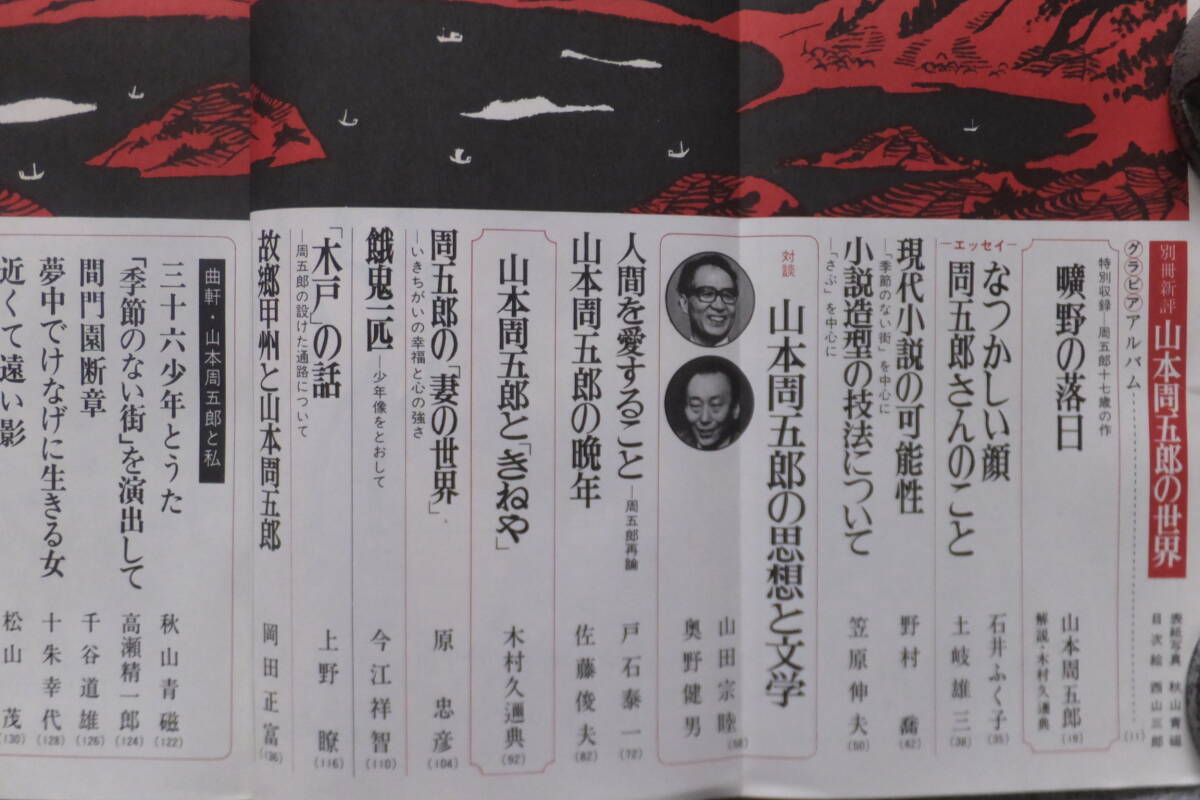 別冊新評
山本周五郎の世界
表紙写真 秋山青磁
目次絵 西山三郎
グラビアアルバム (11)
特別収録―周五郎十七歳の作
曠野の落日
山本周五郎 (19)
解説・木村久邇典
―エッセイ―
なつかしい顔
石井ふく子 (35)
周五郎さんのこと
土岐雄三 (38)
現代小説の可能性
―「季節のない街」を中心に
野村 喬 (42)
小説造型の技法について
―「さぶ」を中心に
笠原伸夫 (50)
対談
山本周五郎の思想と文学
山田宗睦
奥野健男 (58)
人間を愛すること
―周五郎再論
戸石泰一 (72)
山本周五郎の晩年
佐藤俊夫 (82)
山本周五郎と「きねや」
木村久邇典 (92)
周五郎の「妻の世界」
―いきちがいの幸福と心の強さ
原 忠彦 (104)
餓鬼一匹
―少年像をとおして
今江祥智 (110)
「木戸」の話
―周五郎の設けた通路について
上野 瞭 (116)
故郷甲州と山本周五郎
岡田正富
曲軒・山本周五郎と私
三十六少年とうた
秋山青磁 (122)
「季節のない街」を演出して
高瀬精一郎 (124)
間門園断章
千谷道雄 (126)
夢中でけなげに生きる女
十朱幸代 (128)
近くて遠い影
松山 茂 (130)